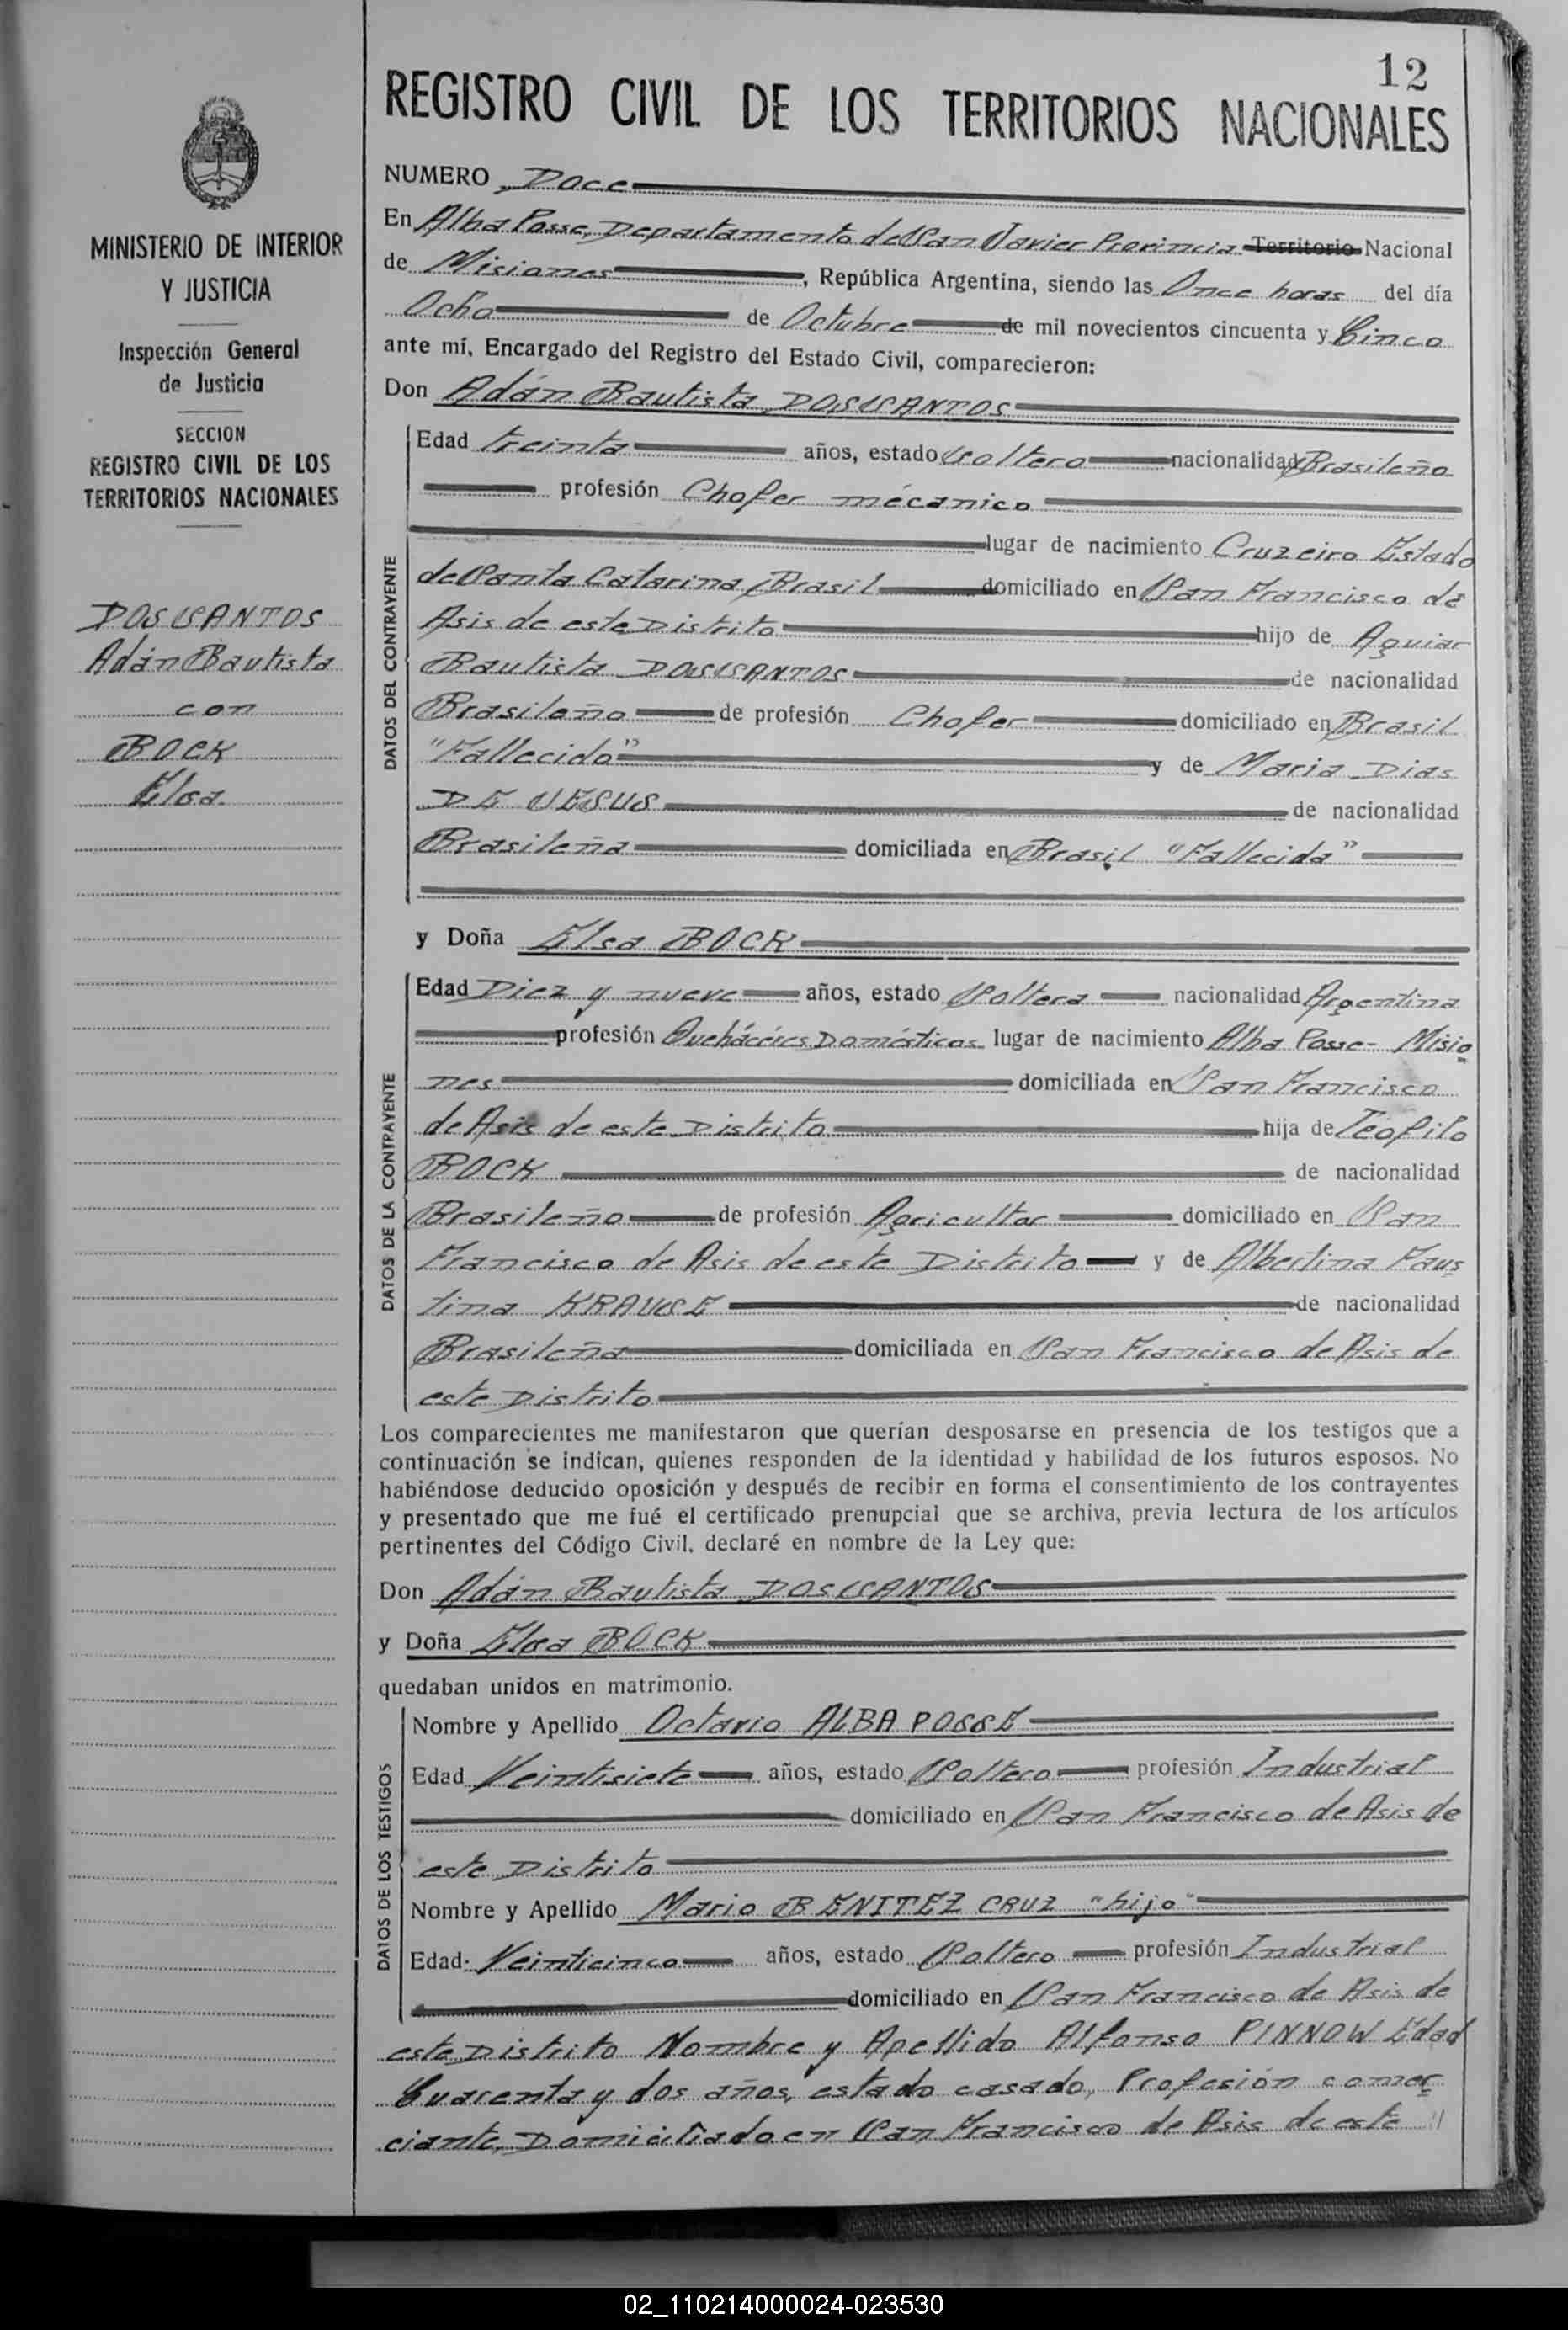 12
REGISTRO CIVIL DE LOS TERRITORIOS NACIONALES
MINISTERIO DE INTERIOR
Y JUSTICIA
Inspección General
de Justicia
SECCION
REGISTRO CIVIL DE LOS
TERRITORIOS NACIONALES
DOS SANTOS
Adán Bautista
con
BOCK
Elsa
NUMERO Doce
En Alba Posse, Departamento de San Javier Provincia Territorio Nacional
de Misiones, República Argentina, siendo las Once horas del día
Ocho de Octubre de mil novecientos cincuenta y Cinco
ante mí, Encargado del Registro del Estado Civil, comparecieron:
Don Adán Bautista DOS SANTOS
DATOS DEL CONTRAYENTE
Edad treinta años, estado Soltero nacionalidad Brasileño
profesión Chofer mécanico
lugar de nacimiento Cruzeiro Estado
de Santa Catarina, Brasil domiciliado en San Francisco de
Asis de este Distrito hijo de Aguiar
Bautista DOS SANTOS de nacionalidad
Brasileño de profesión Chofer domiciliado en Brasil
"Fallecido" y de Maria Dias
DE JESUS de nacionalidad
Brasileña domiciliada en Brasil "Fallecida"
y Doña Elsa BOCK
DATOS DE LA CONTRAYENTE
Edad Diez y nueve años, estado Soltera nacionalidad Argentina
profesión Quehácéres Domésticos lugar de nacimiento Alba Posse - Misio
nes domiciliada en San Francisco
de Asis de este Distrito hija de Teófilo
BOCK de nacionalidad
Brasileño de profesión Agricultor domiciliado en San
Francisco de Asis de este Distrito y de Albertina Faus
tina KRAUSE de nacionalidad
Brasileña domiciliada en San Francisco de Asis de
este Distrito
Los comparecientes me manifestaron que querían desposarse en presencia de los testigos que a
continuación se indican, quienes responden de la identidad y habilidad de los futuros esposos. No
habiéndose deducido oposición y después de recibir en forma el consentimiento de los contrayentes
y presentado que me fué el certificado prenupcial que se archiva, previa lectura de los artículos
pertinentes del Código Civil, declaré en nombre de la Ley que:
Don Adán Bautista DOS SANTOS
y Doña Elsa BOCK
quedaban unidos en matrimonio.
DATOS DE LOS TESTIGOS
Nombre y Apellido Octavio ALBA POSSE
Edad Veintisiete años, estado Soltero profesión Industrial
domiciliado en San Francisco de Asis de
este Distrito
Nombre y Apellido Mario BENITEZ CRUZ "hijo"
Edad Veinticinco años, estado Soltero profesión Industrial
domiciliado en San Francisco de Asis de
este Distrito Nombre y Apellido Alfonso PINNOW Edad
Cuarenta y dos años, estado casado, Profesión comer
ciante, Domiciliado en San Francisco de Asis de este //
02_110214000024-023530